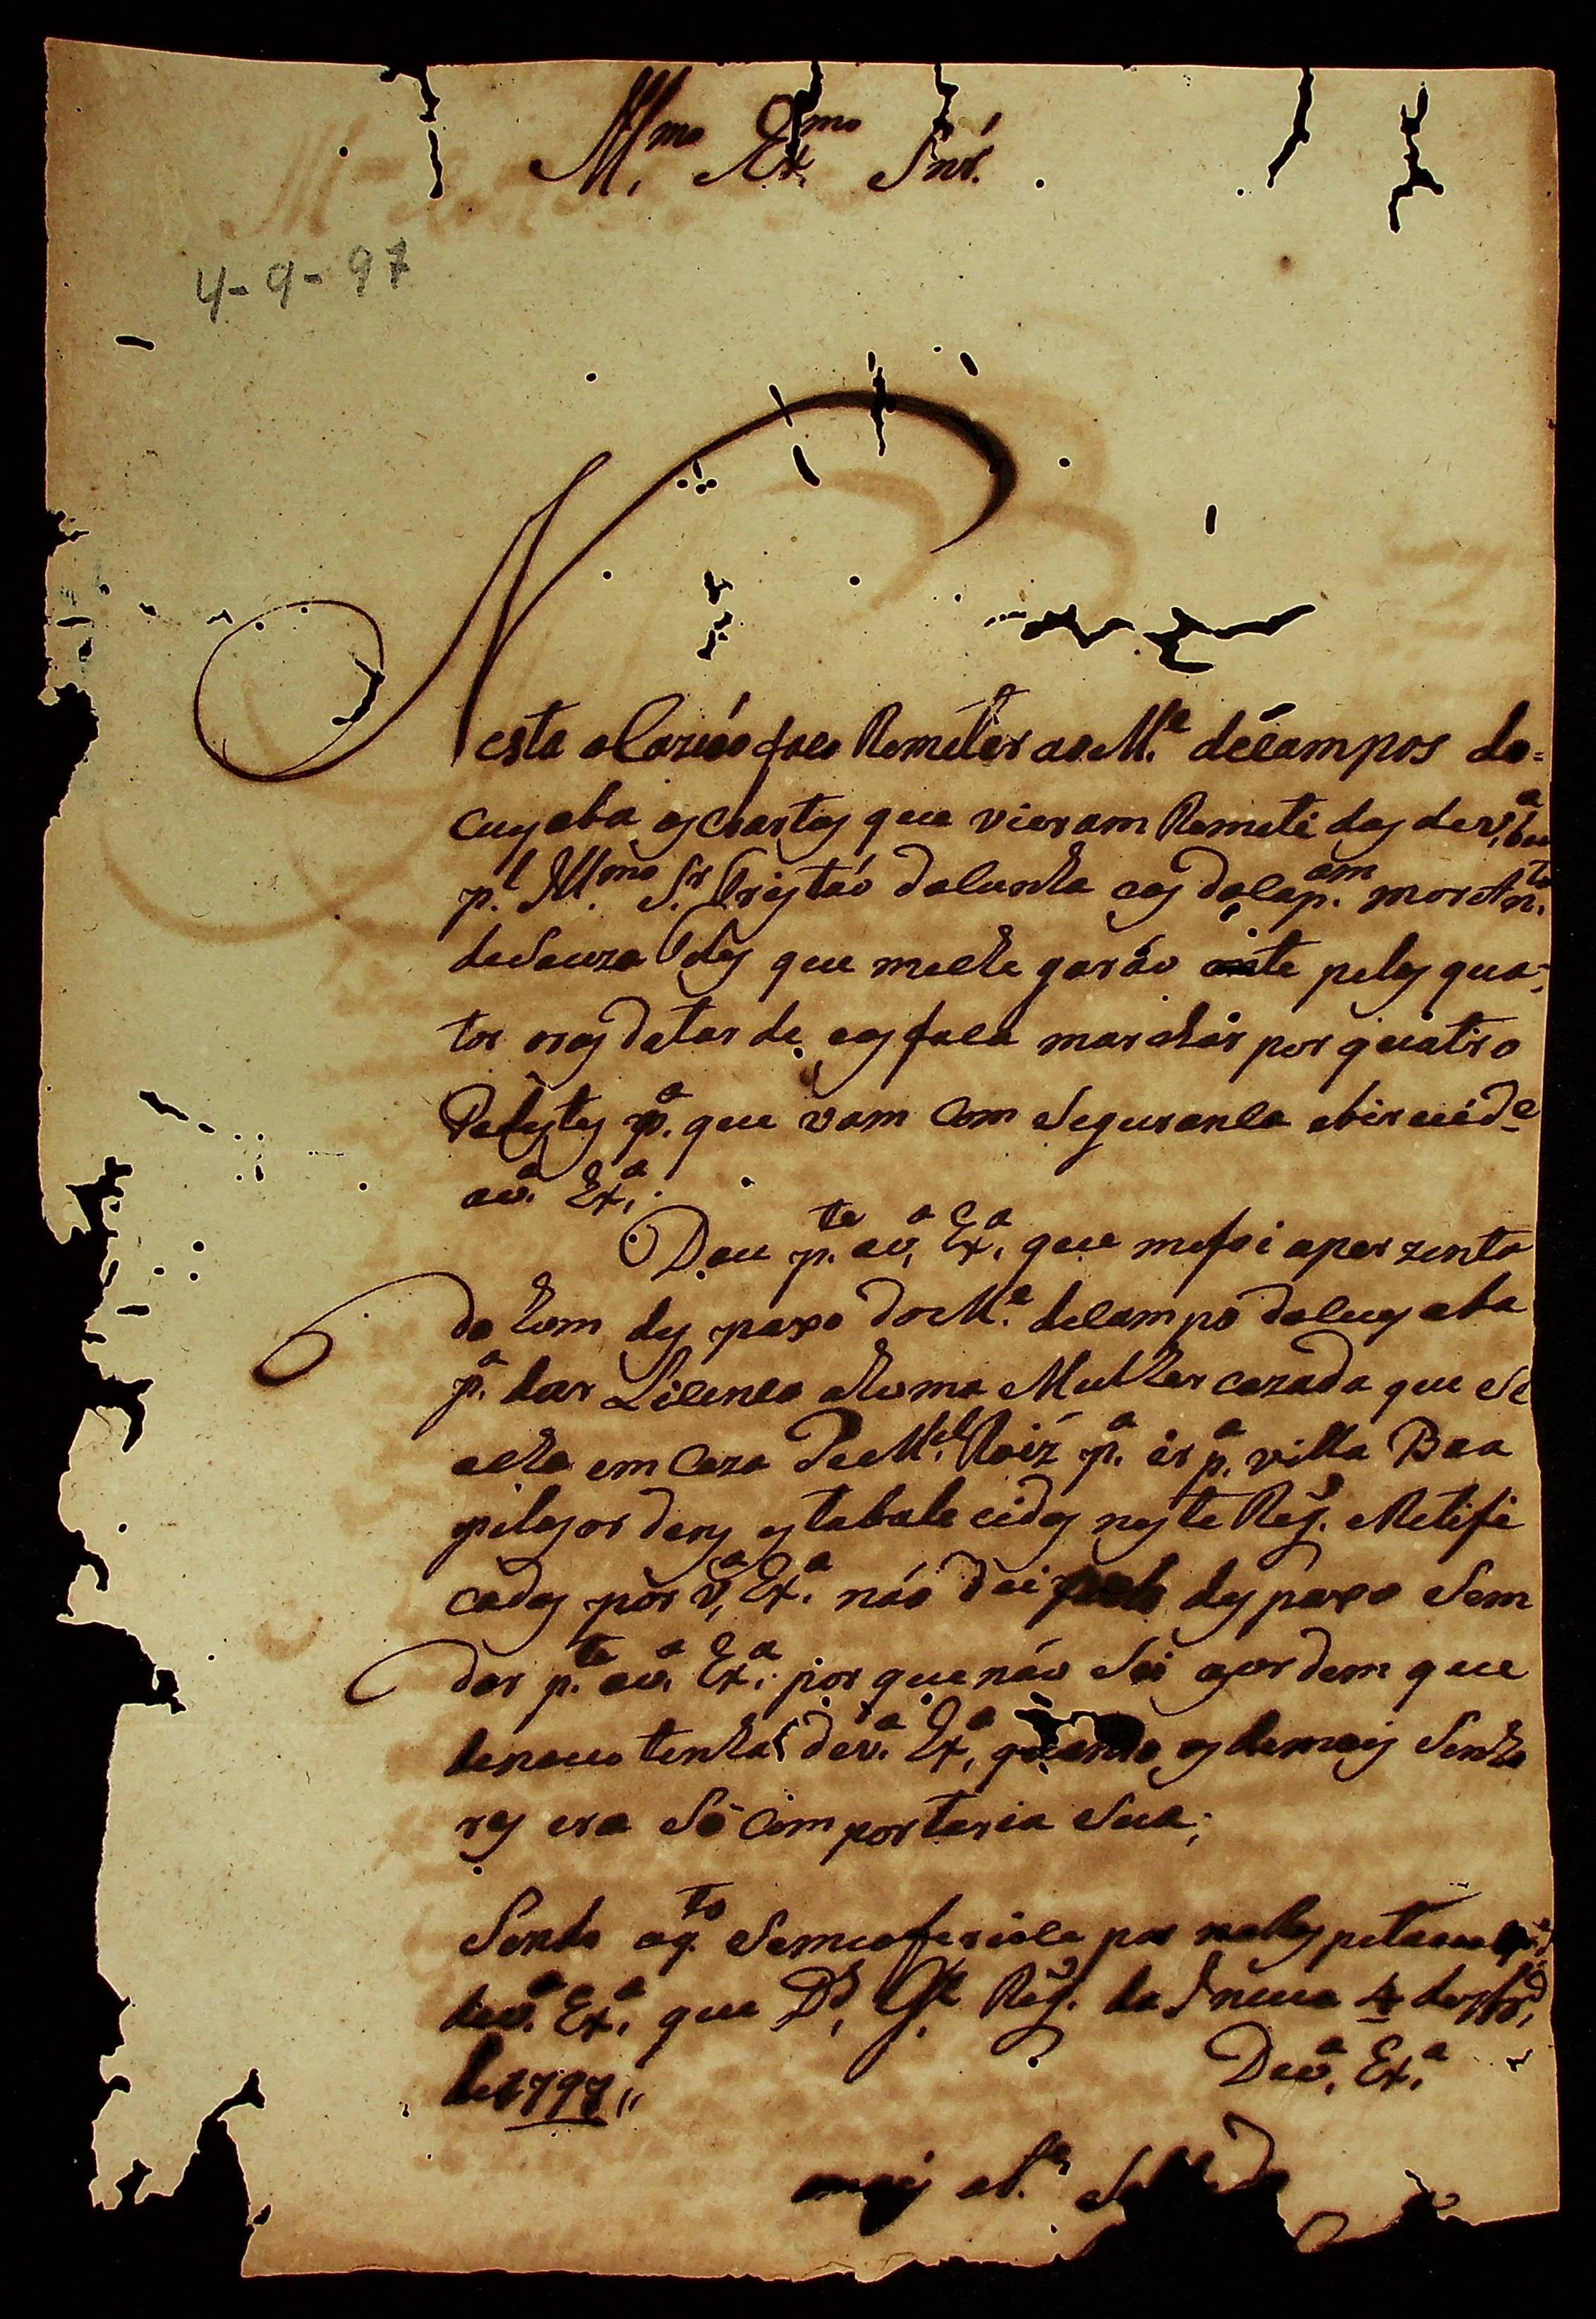 Ill.mo Ex.mo Snr.
4-9-97
Nesta olcazião faco Remeter ao M.e decampos do=
cuyaba as cartas que vieram Remeti das de v.a bua
p.l Ill.mo S.r Tristaó dalunha eas dolap.am mor An.to
deSouza Telles que melhe garáo oite pelas qua=
tor oras datar de, eas faca marchar por quatro
Pedestes p.a que vam Com Seguranca
av.a Ex.a.
Dou p.te av.a Ex.a, que mefoi aper zenta
do hum des paxo do M.e delampo daluyaba
p.a dar Licenca ahuma Mulher cazada que Se
acha em Caza De M.el Roiz p.a ir p.a villa Boa
pilas or dens estabale cidas neste Reg.o e Retifi
cadas por v.a Ex.a não dei des paxo Sem
dar p.te av.a Ex.a; por que náo Sei a or dem que
denovo tenha dev.a Ex.a, quando os demais Senho
res era Só Com portaria Sua;
Sendo oq.to Semeofericia por nos pés
dev.a Ex.a, que D.s G.e Reg.o da 4 de 7br.o
de1797,,
Dev.a Ex.a
mais at.to